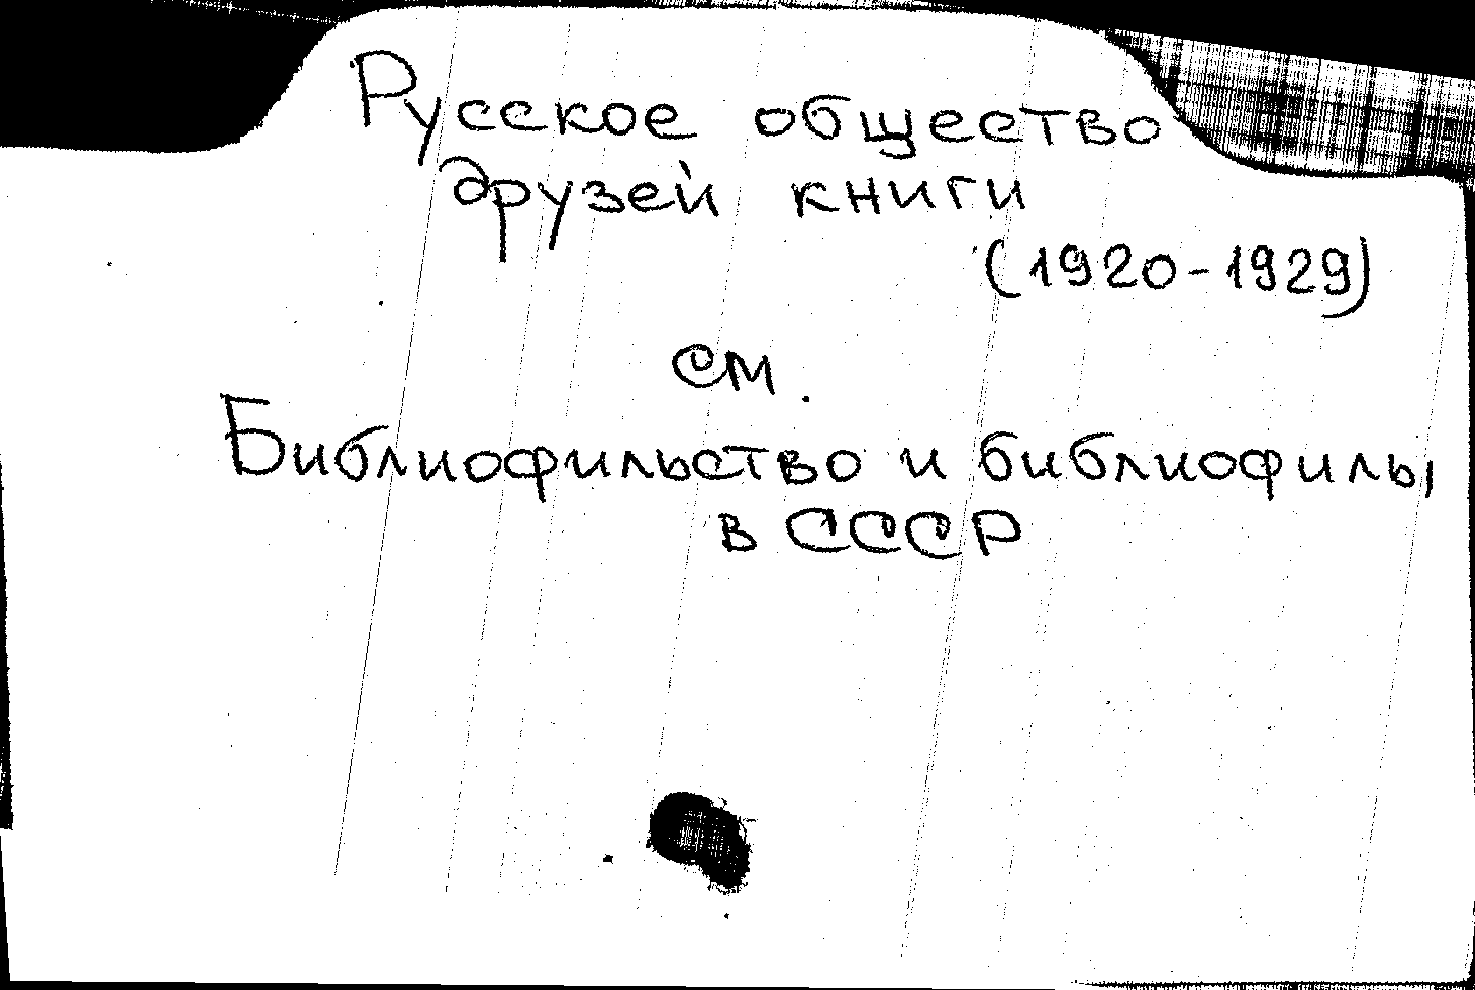 Русское общество
друзей книги
(1920-1929)
см.
Библиофильство и библиофилы
в СССР